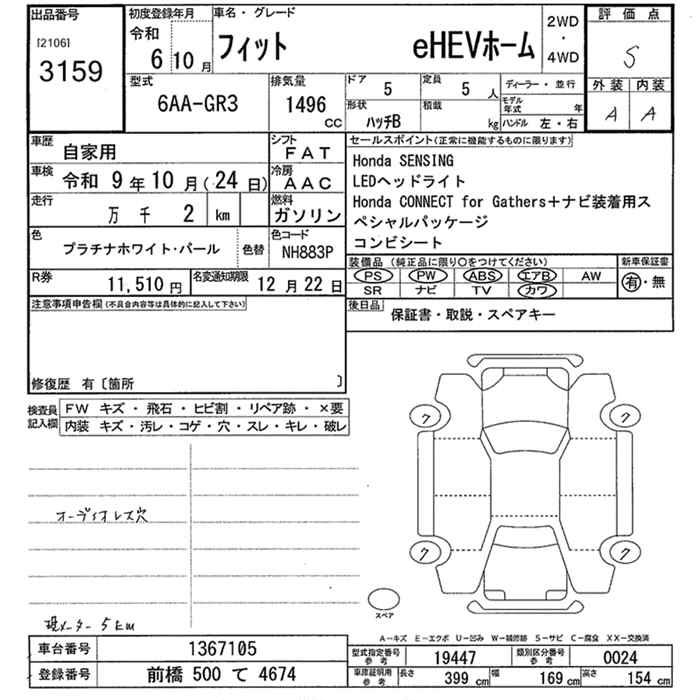 出品番号 初度登録年月 車名・グレード 2WD・4WD 評価点
[2106] 3159 令和 6 10月 フィット eHEVホーム S
型式 排気量 ドア 5 定員 5人 ディーラー・並行 外装 内装
6AA-GR3 1496 CC 形状 ハッチB 積載 kg モデル年式 年 ハンドル 左・右 A A
車歴 自家用 シフト FAT セールスポイント(正常に機能するものに限ります)
車検 令和 9年10月(24日) 冷房 AAC Honda SENSING
LEDヘッドライト
走行 万 千 2 km 燃料 ガソリン Honda CONNECT for Gathers+ナビ装着用ス
ペシャルパッケージ
コンビシート
色 プラチナホワイト・パール 色替 色コード NH883P
装備品 (純正品に限り○をつけてください) 新車保証書
PS PW ABS エアB AW 有・無
SR ナビ TV カワ
R券 11,510円 名変通知期限 12月22日
注意事項申告欄(不具合内容等は具体的に記入して下さい) 後日品 保証書・取説・スペアキー
修復歴 有〔箇所 〕
検査員記入欄 FW キズ・飛石・ヒビ割・リペア跡・×要
内装 キズ・汚レ・コゲ・穴・スレ・キレ・破レ
ク ク
オーディオレス穴
ク ク
スペア
現メーター 5km
A-キズ E-エクボ U-凹み W-補修跡 S-サビ C-腐食 XX-交換済
車台番号 1367105 型式指定番号 参考 19447 類別区分番号 参考 0024
登録番号 前橋 500 て 4674 車庫証明用 参考 長さ 399 cm 幅 169 cm 高さ 154 cm